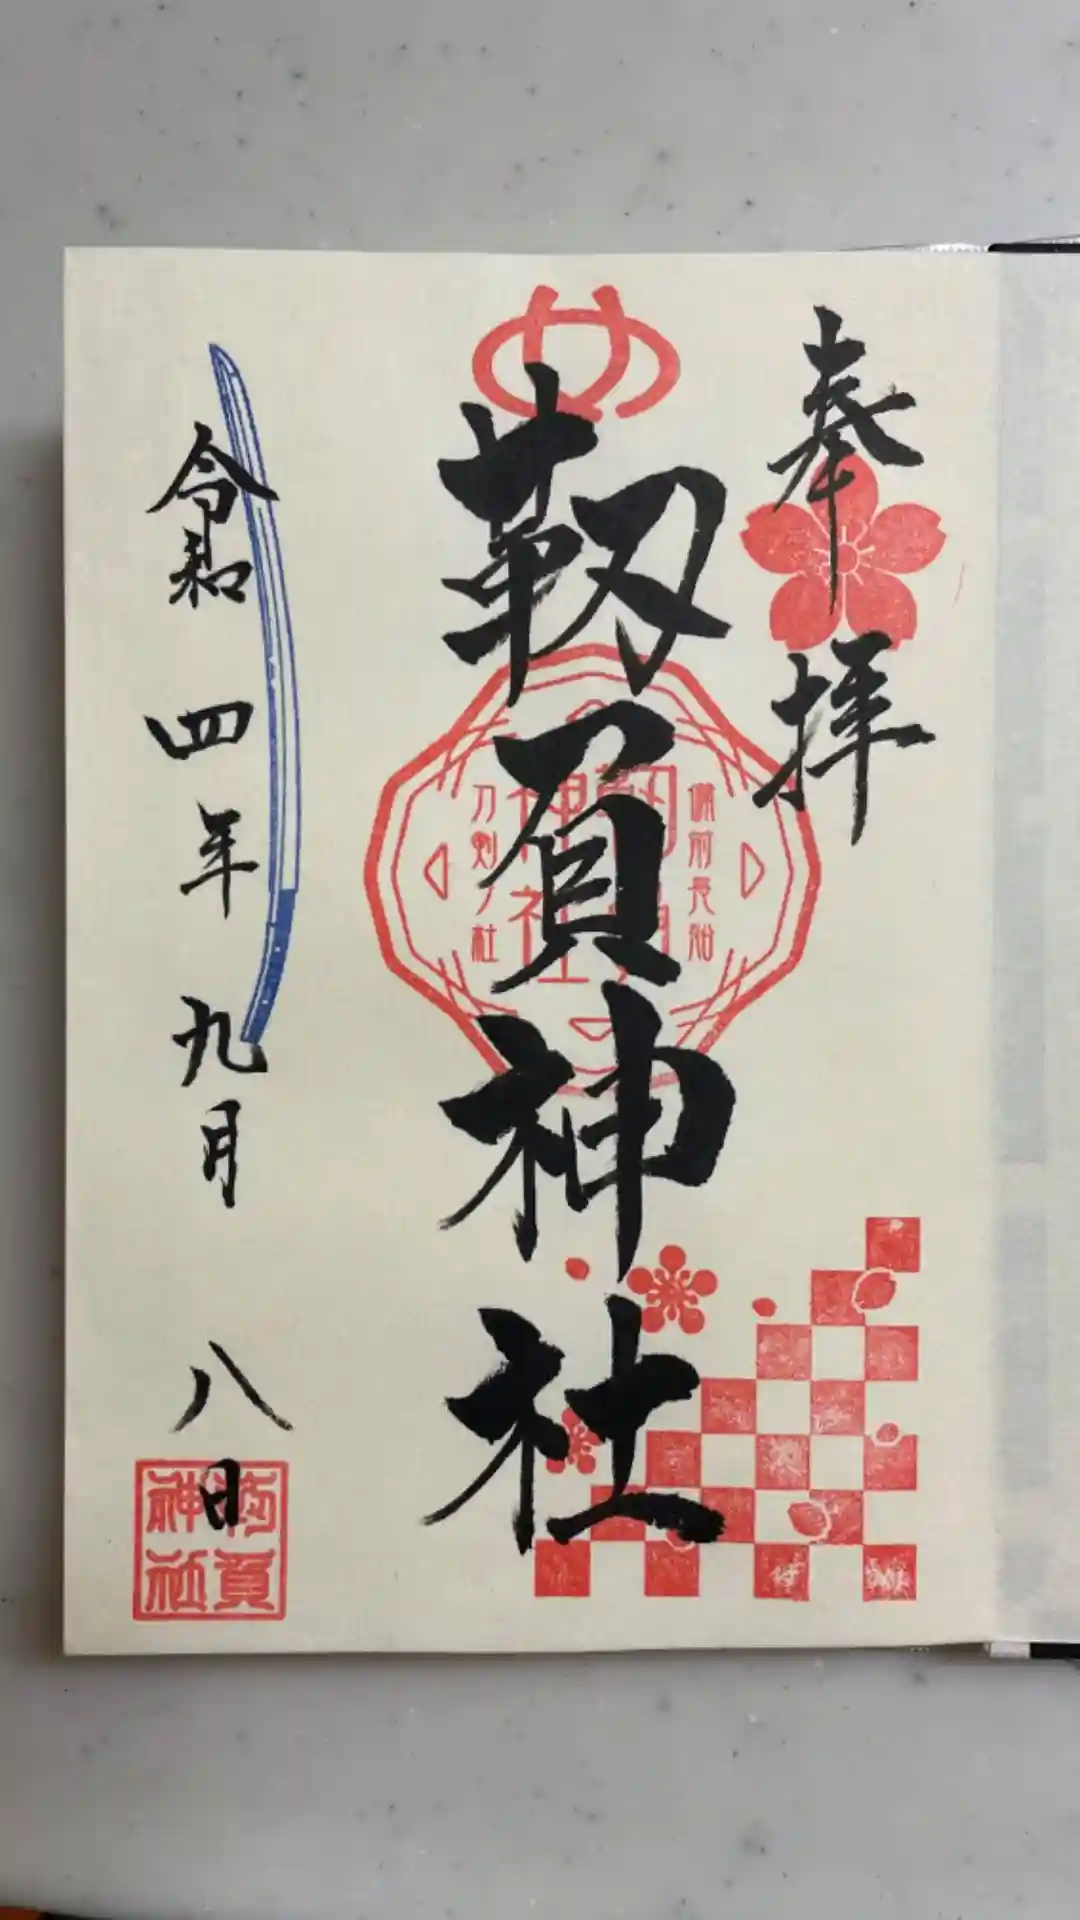 奉拝
靱負神社
備前長船
刀剣ノ社
令和四年九月八日
靱負
神社